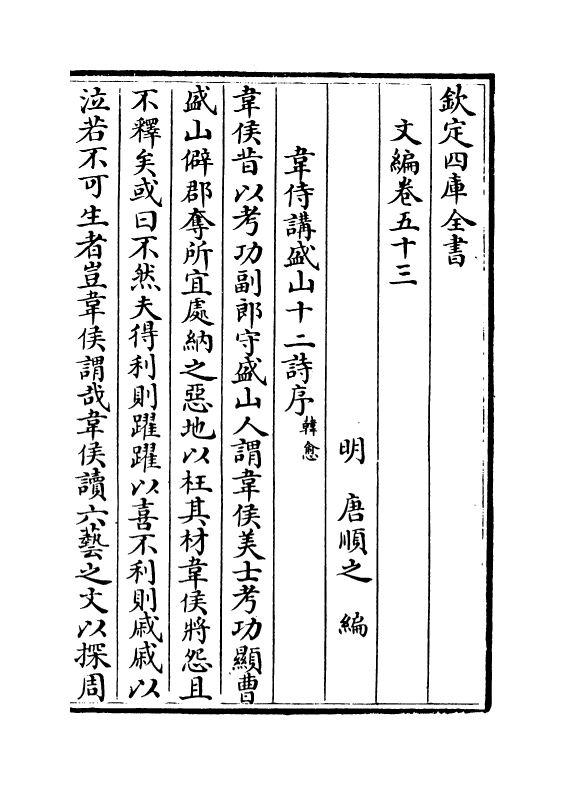 欽定四庫全書
文編卷五十三
明 唐順之 編
韋侍講盛山十二詩序 韓愈
韋侯昔以考功副郎守盛山人謂韋侯美士考功顯曹
盛山僻郡奪所宜處納之惡地以枉其材韋侯將怨且
不釋矣或曰不然夫得利則躍躍以喜不利則戚戚以
泣若不可生者豈韋侯謂哉韋侯讀六藝之文以探周